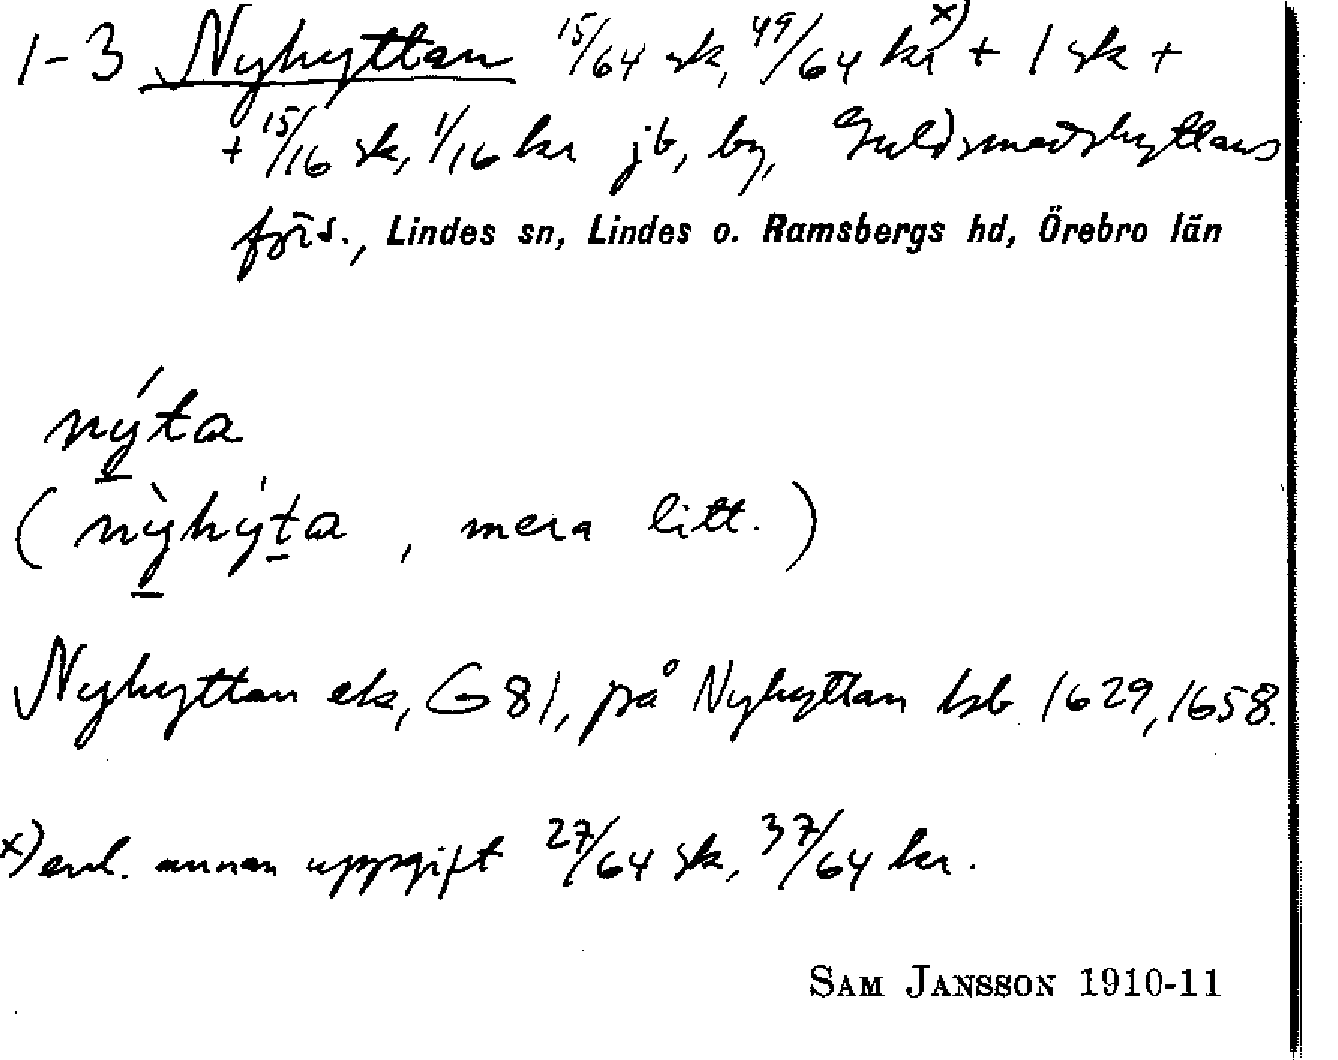 1-3 Nyhyttan 15/64 sk, 49/64 kr x) + 1 sk +
+ 15/16 sk, 1/16 kr jb, by, Guldsmedshyttans
förs., Lindes sn, Lindes o. Ramsbergs hd, Örebro län
nýta
(nỳhýta, mera litt.)
Nyhyttan ek, G 81, på Nyhyttan hsb 1629, 1658.
x) enl. annan uppgift 27/64 sk, 37/64 kr.
SAM JANSSON 1910-11